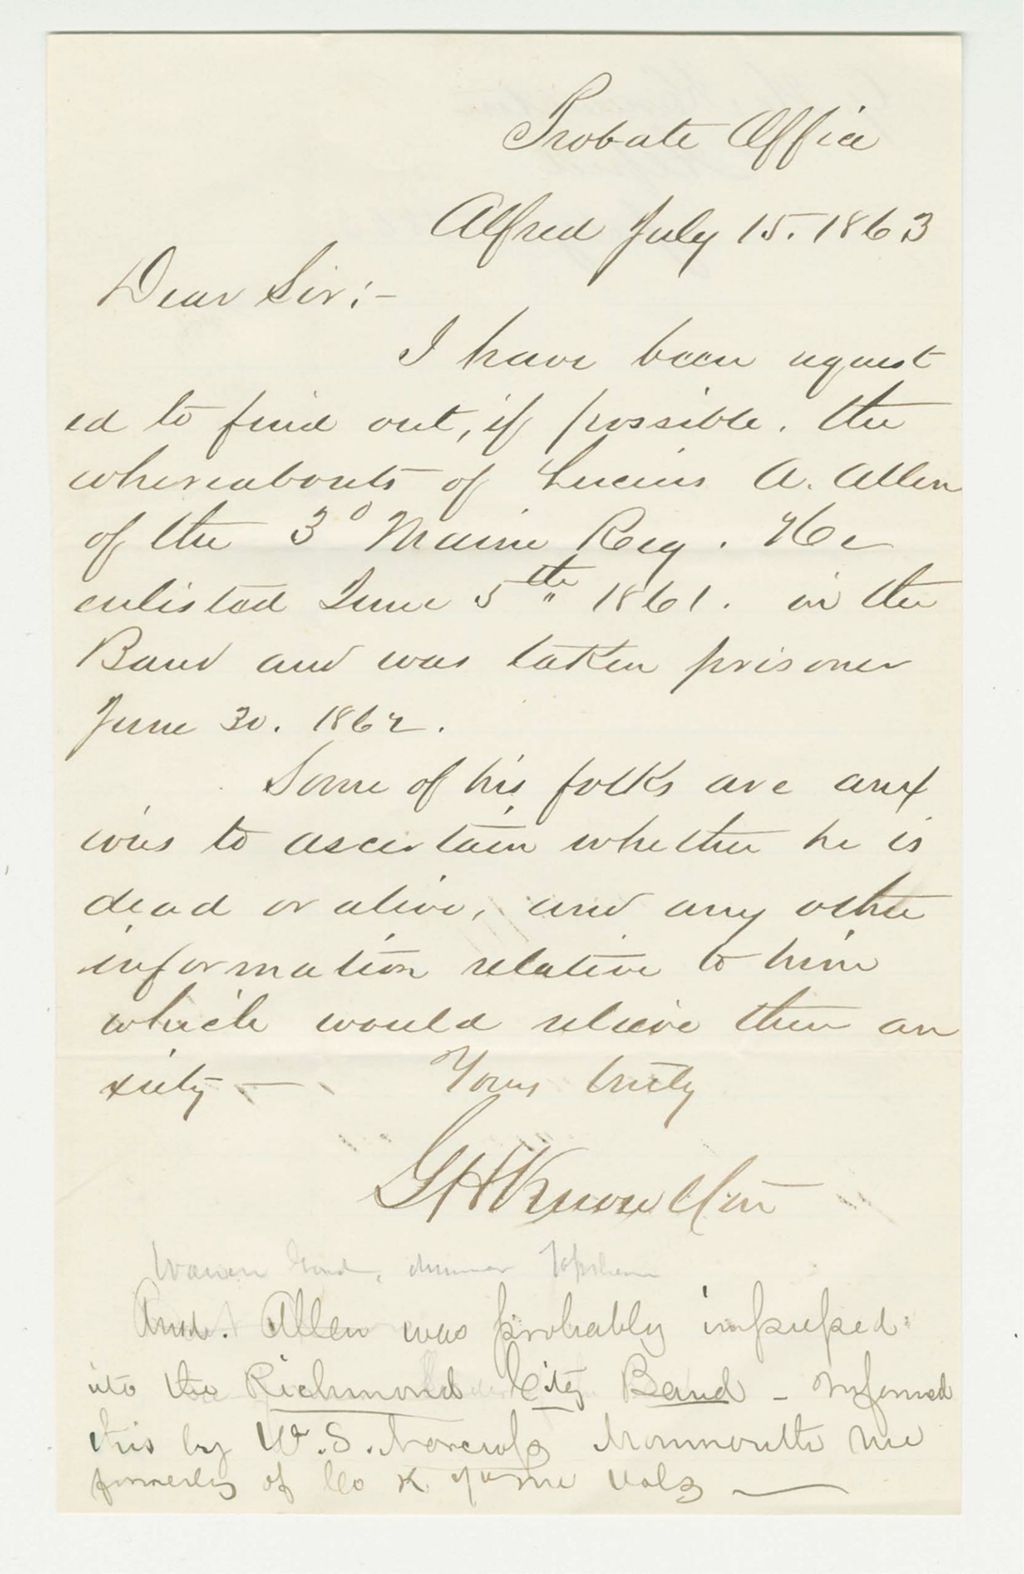 Probate Office
Alfred July 15. 1863
Dear Sir:-
I have been request
ed to find out, if possible, the
whereabouts of Lucius A. Allen
of the 3d Maine Reg. He
enlisted June 5th 1861. in the
Band and was taken prisoner
June 30. 1862.
Some of his folks are anx
ious to ascertain whether he is
dead or alive, and any other
information relative to him
which would relieve their an
xiety — Yours truly
G H Knowlton
Warren Topsham
Ansr. Allen was probably impressed
into the Richmond City Band - Informed
this by W. S. Norcross Monmouth Me
formerly of Co K Me Vols —